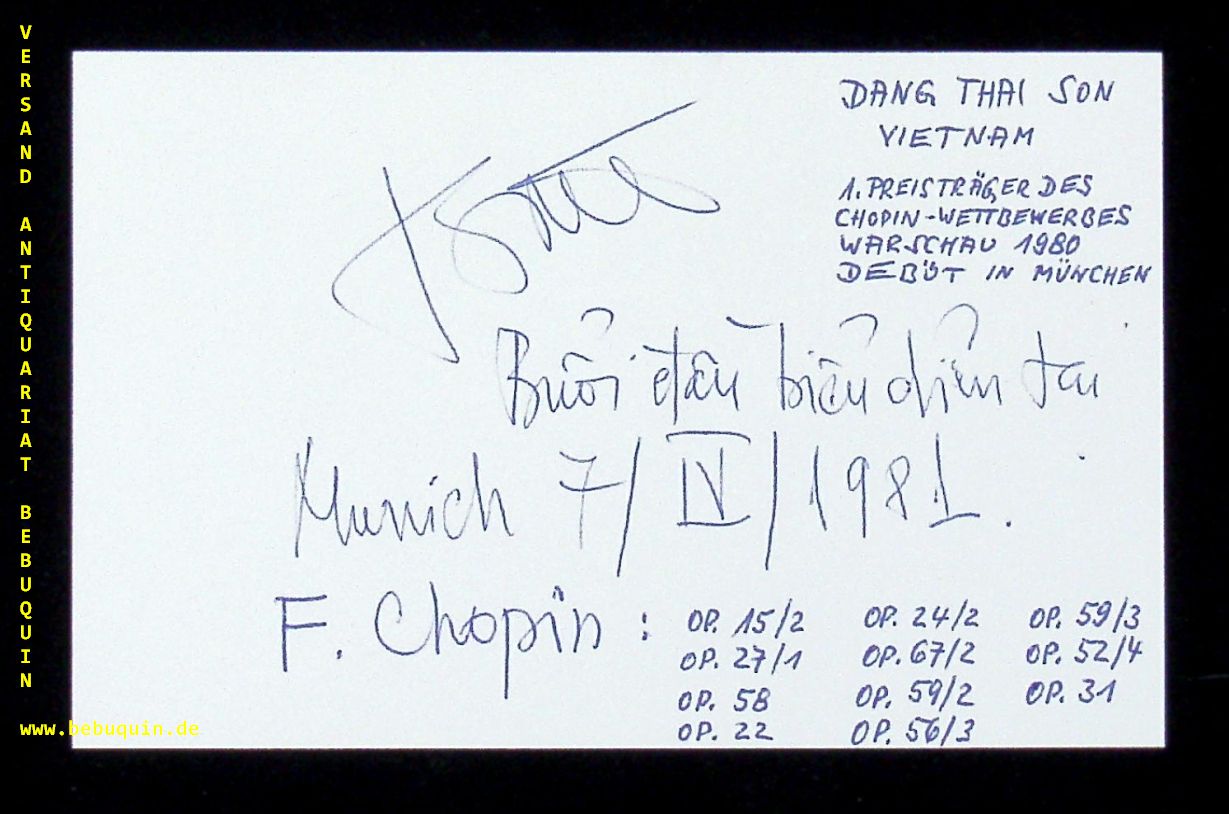 VERSAND ANTIQUARIAT BEBUQUIN
www.bebuquin.de
DANG THAI SON
VIETNAM
1. PREISTRÄGER DES
CHOPIN-WETTBEWERBES
WARSCHAU 1980
DEBÜT IN MÜNCHEN
Buổi đầu biểu diễn tại
Munich 7/IV/1981.
F. Chopin :
OP. 15/2 OP. 24/2 OP. 59/3
OP. 27/1 OP. 67/2 OP. 52/4
OP. 58 OP. 59/2 OP. 31
OP. 22 OP. 56/3